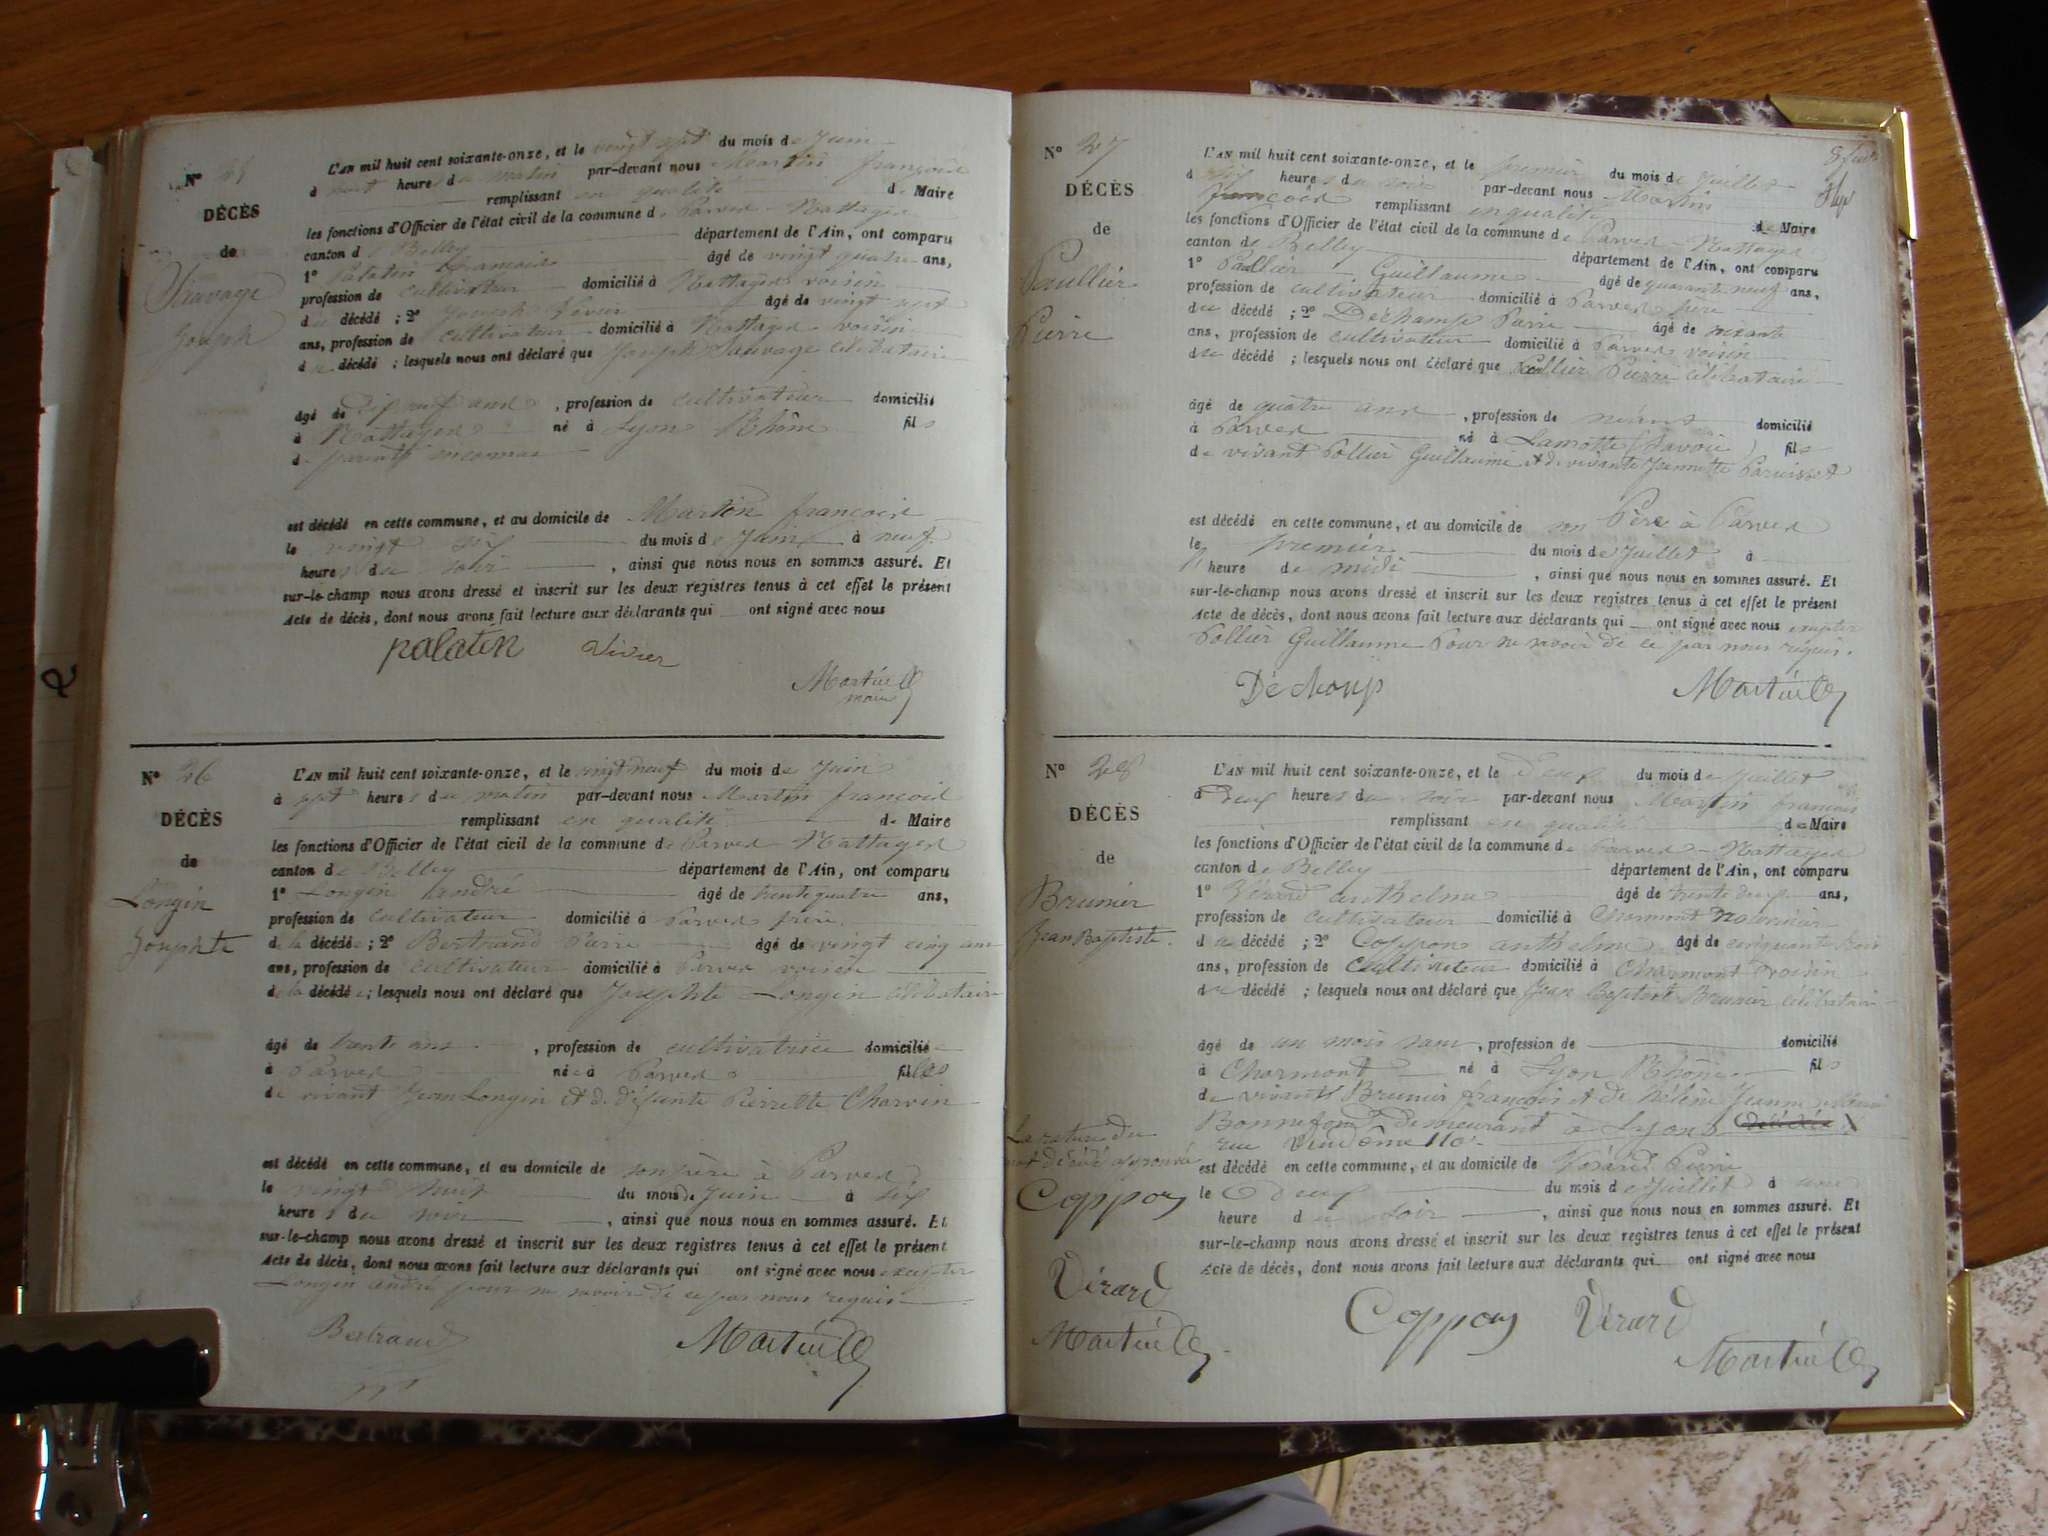 N° 25
DÉCÈS
de
Joseph
L'AN mil huit cent soixante-onze, et le vingt sept du mois de Juin
à heures du matin par-devant nous Martin françois
remplissant en qualité de Maire
les fonctions d'Officier de l'état civil de la commune de Parves Nattages
canton de Belley département de l'Ain, ont comparu
1° Palatin francois âgé de vingt quatre ans,
profession de cultivateur domicilié à Nattages voisin
du décédé ; 2° Joseph Vivier âgé de vingt
ans, profession de cultivateur domicilié à Nattages voisin
du décédé ; lesquels nous ont déclaré que Joseph Sauvage célibataire
âgé de Dix neuf ans , profession de cultivateur domicilié
à Nattages né à Lyon Rhône fils
de parents inconnus
est décédé en cette commune, et au domicile de Martin francois
le vingt six du mois de Juin à neuf
heures du soir , ainsi que nous nous en sommes assuré. Et
sur-le-champ nous avons dressé et inscrit sur les deux registres tenus à cet effet le présent
Acte de décès, dont nous avons fait lecture aux déclarants qui ont signé avec nous
palatin Vivier
Martin
maire
N° 26
DÉCÈS
de
Longin
Josephte
L'AN mil huit cent soixante-onze, et le vingt neuf du mois de Juin
à sept heures du matin par-devant nous Martin francois
remplissant en qualité de Maire
les fonctions d'Officier de l'état civil de la commune de Parves Nattages
canton de Belley département de l'Ain, ont comparu
1° Longin André âgé de trente quatre ans,
profession de cultivateur domicilié à Parves frère
de la décédée ; 2° Bertrand Pierre âgé de vingt cinq ans
ans, profession de cultivateur domicilié à Parves voisin
de la décédée ; lesquels nous ont déclaré que Josephte Longin célibataire
âgé de trente ans , profession de cultivatrice domiciliée
à Parves née à Parves filles
de vivant Jean Longin et de défunte Pierrette Charvin
est décédé en cette commune, et au domicile de son père à Parves
le vingt huit du mois de Juin à six
heures du soir , ainsi que nous nous en sommes assuré. Et
sur-le-champ nous avons dressé et inscrit sur les deux registres tenus à cet effet le présent
Acte de décès, dont nous avons fait lecture aux déclarants qui ont signé avec nous excepter
Longin André pour ne savoir de ce par nous requis
Bertrand Martin
N° 27
DÉCÈS
de
Paullier
Pierre
L'AN mil huit cent soixante-onze, et le premier du mois de Juillet
à six heures du soir par-devant nous Martin
françois remplissant en qualité de Maire
les fonctions d'Officier de l'état civil de la commune de Parves Nattages
canton de Belley département de l'Ain, ont comparu
1° Paullier Guillaume âgé de quarante neuf ans,
profession de cultivateur domicilié à Parves père
du décédé ; 2° Dechamp Pierre âgé de soixante
ans, profession de cultivateur domicilié à Parves voisin
du décédé ; lesquels nous ont déclaré que Paullier Pierre célibataire
âgé de quatre ans , profession de néant domicilié
à Parves né à Lamotte (Savoie) fils
de vivant Pollier Guillaume et de vivante Jeannette
est décédé en cette commune, et au domicile de son Père à Parves
le premier du mois de Juillet à
heure de midi , ainsi que nous nous en sommes assuré. Et
sur-le-champ nous avons dressé et inscrit sur les deux registres tenus à cet effet le présent
Acte de décès, dont nous avons fait lecture aux déclarants qui ont signé avec nous excepter
Pollier Guillaume Pour ne savoir de ce par nous requis.
Déchamp Martin
N° 28
DÉCÈS
de
Brunier
Jean Baptiste
L'AN mil huit cent soixante-onze, et le Deux du mois de Juillet
à Deux heures du soir par-devant nous Martin francois
remplissant en qualité de Maire
les fonctions d'Officier de l'état civil de la commune de Parves Nattages
canton de Belley département de l'Ain, ont comparu
1° Vérard anthelme âgé de trente deux ans,
profession de cultivateur domicilié à Charmont
du décédé ; 2° Coppon anthelme âgé de cinquante trois
ans, profession de cultivateur domicilié à Charmont voisin
du décédé ; lesquels nous ont déclaré que Jean Baptiste Brunier célibataire
âgé de un mois , profession de domicilié
à Charmont né à Lyon Rhône fils
de vivant Brunier françois et de Hélène Jeanne
Bonnefond demeurant à Lyon décédée X
rue Vendôme 110
est décédé en cette commune, et au domicile de Vérard Pierre
le deux du mois de Juillet à une
heure du soir , ainsi que nous nous en sommes assuré. Et
sur-le-champ nous avons dressé et inscrit sur les deux registres tenus à cet effet le présent
Acte de décès, dont nous avons fait lecture aux déclarants qui ont signé avec nous
La rature du
mot décédé approuvé
Coppon
Vérard
Martin
Coppon Vérard
Martin